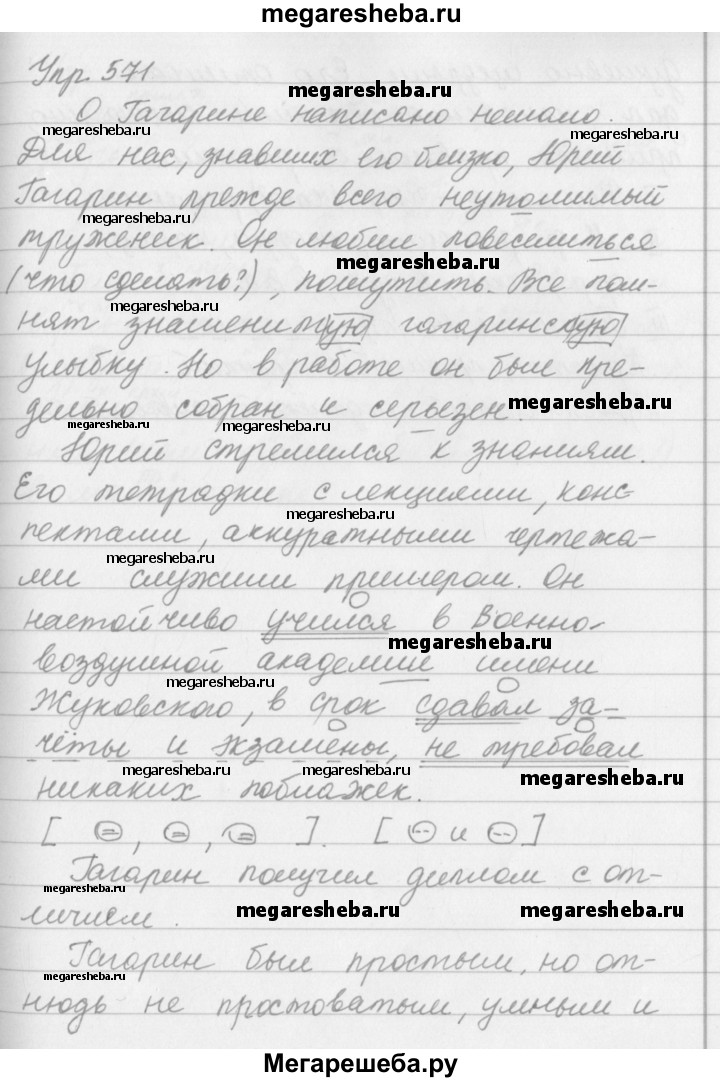 megaresheba.ru
Упр. 571
megaresheba.ru
О Гагарине написано немало.
megaresheba.ru
megaresheba.ru
Для нас, знавших его близко, Юрий
Гагарин прежде всего неутомимый
megaresheba.ru
труженик. Он любил повеселиться
megaresheba.ru
(что сделать?), пошутить. Все пом-
megaresheba.ru
нят знаменитую гагаринскую
улыбку. Но в работе он был пре-
дельно собран и серьезен.
megaresheba.ru
megaresheba.ru
megaresheba.ru
Юрий стремился к знаниям.
Его тетрадки с лекциями, конс-
megaresheba.ru
пектами, аккуратными чертежа-
megaresheba.ru
ми служили примером. Он
настойчиво учился в Военно-
megaresheba.ru
воздушной академии имени
megaresheba.ru
Жуковского, в срок сдавал за-
чёты и экзамены, не требовал
megaresheba.ru
megaresheba.ru
megaresheba.ru
никаких поблажек.
[ , , ]. [ и ]
Гагарин получил диплом с от-
megaresheba.ru
личием.
megaresheba.ru
megaresheba.ru
Гагарин был простым, но от-
megaresheba.ru
нюдь не простоватым, умным и
Мегарешеба.ру